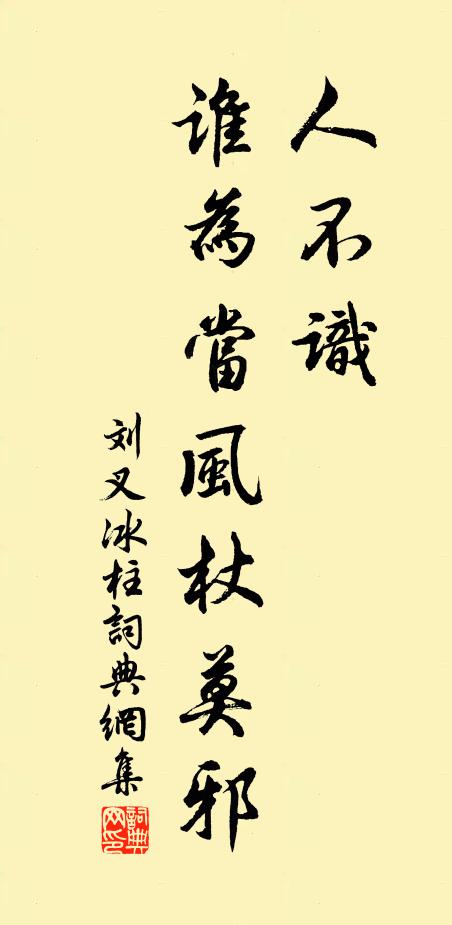 人不識
誰為當風杖莫邪
刘叉冰柱詞典網集
詞典网印